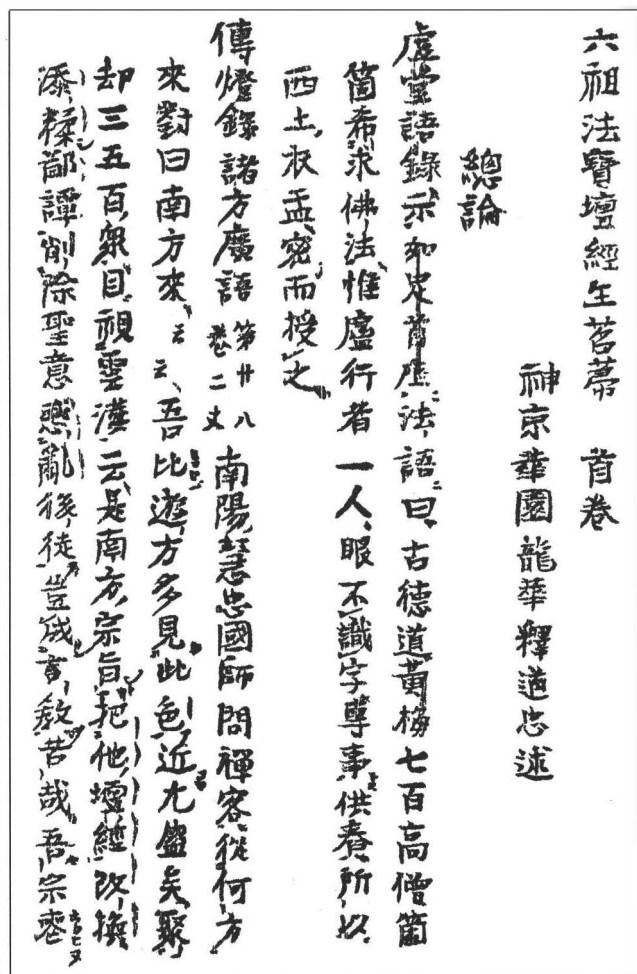 六祖法寶壇經生苕菷 首卷
神京華園龍華釋道忠述
總論
虛堂語錄示如首座法語曰古德道黃梅七百高僧箇
箇希求佛法惟盧行者一人眼不識字專事供養所以
西上衣盂密而授之
傳燈錄諸方廣語 第廿八卷二丈 南陽慧忠國師問禪客從何方
來對曰南方來云云吾比遊方多見此色近尤盛矣聚
却三五百眾目視雲漢云是南方宗旨把他壇經改換
添糅鄙譚削除聖意亂後徒豈成言教苦哉吾宗喪